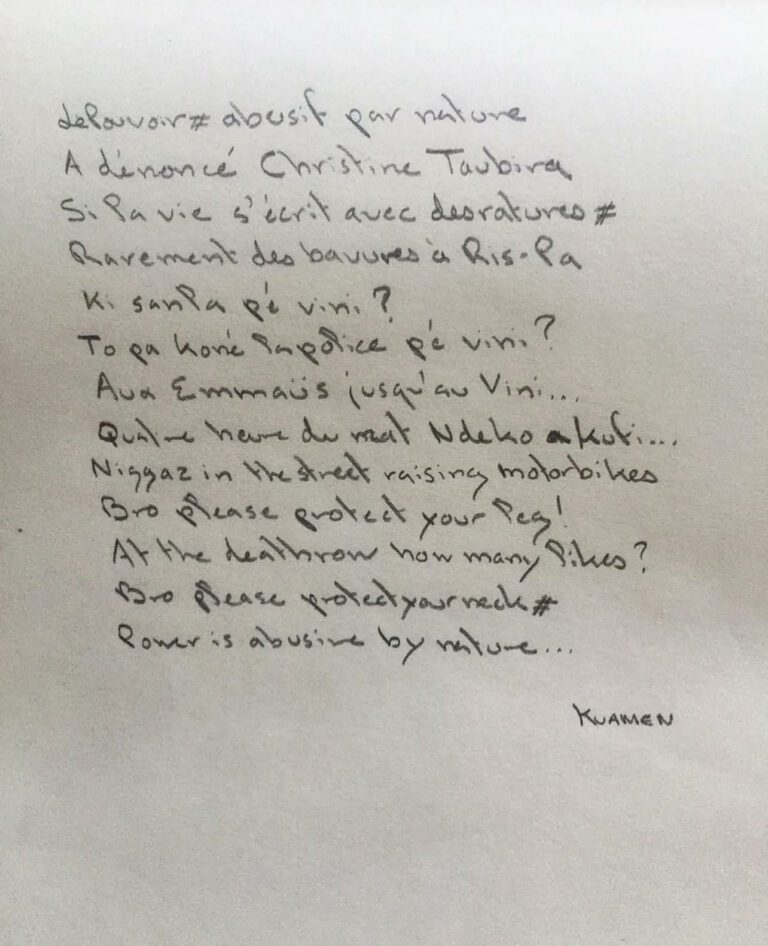 delpouvoir# abusif par nature
A dénoncé Christine Taubira
Si la vie s'écrit avec des ratures #
Rarement des bavures à Ris-Pa
Ki sanla pé vini ?
To pa koné lapolice pé vini ?
Aux Emmaüs jusqu'au Vini...
Quatre heure du mat Ndeko a kufi...
Niggaz in the street raising motorbikes
Bro please protect your leg!
At the deathrow how many likes ?
Bro please protect your neck #
Power is abusive by nature...
KWAMEN